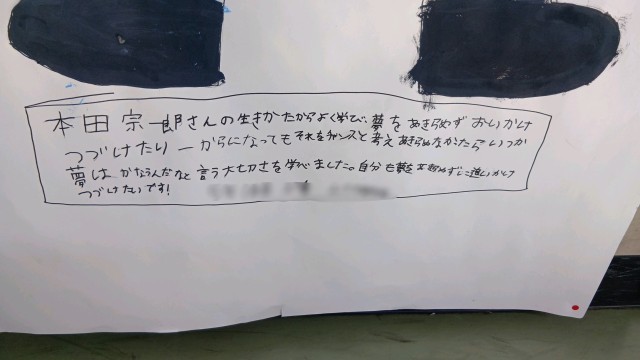 本田宗一郎さんの生きかたからよく学び、夢をあきらめずおいかけ
つづけたり一からになってもそれをチャンスと考えあきらめなかたらいつか
夢はかなうんだなと言う大切さを学べました。自分も夢を ずに追いかけ
つづけたいです!